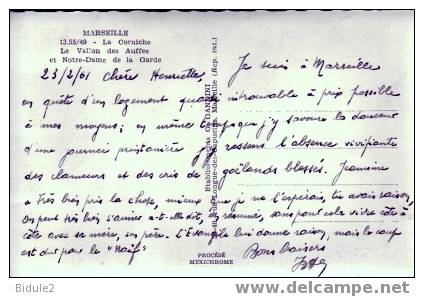 MARSEILLE
13.55/49 - La Corniche
Le Vallon des Auffes
et Notre-Dame de la Garde
23/2/61 Chère Henriette, Je suis à Marseille
en quête d'un logement quasi introuvable à prix possible
à mes moyens ; en même temps que j'y savoure la douceur
d'une journée printanière je ressens l'absence vivifiante
des clameurs et des cris de goélands blessés. Jeannine
a très bien pris la chose, mieux que je ne l'espérais, tu avais raison,
On peut très bien s'aimer a-t-elle dit, en résumé, sans pour cela vivre côte à
côte avec sa mère, son père. L'Evangile lui donne raison, mais le coup
est dur pour le "Naïf" Bons baisers
Etablissements G. GIANNINI
Marseille (Rep. int.)
PROCÉDÉ
MEXICHROME
Bidule2
www.delcampe.net